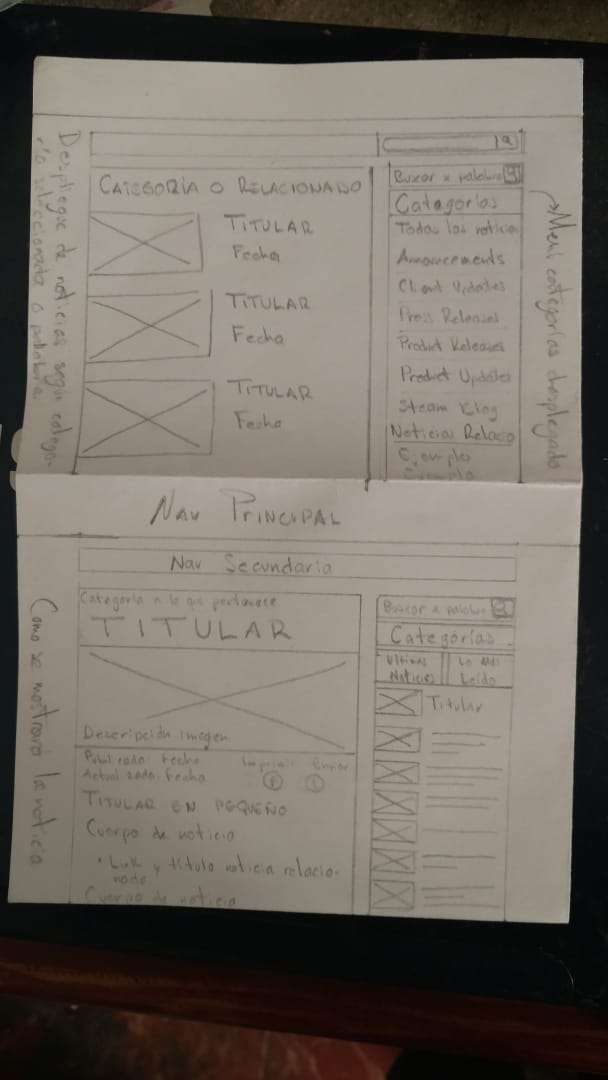 Despliegue de noticias según catego-
ría seleccionada o palabra.
CATEGORÍA O RELACIONADO
TITULAR
Fecha
TITULAR
Fecha
TITULAR
Fecha
Buscar x palabra
Categorías
Todas las noticias
Announcements
Client Updates
Press Releases
Product Releases
Product Updates
Steam Blog
Noticias Relacio
Ejemplo
Ejemplo
Menú categorías desplegado
NAV PRINCIPAL
Nav Secundaria
Como se mostrará la noticia
Categoría a la que pertenece
TITULAR
Descripción imagen
Publicado: Fecha
Actualizado: Fecha
Imprimir
Enviar
f
t
TITULAR EN PEQUEÑO
Cuerpo de noticia
• Link y título noticia relacio-
nada
Cuerpo de noticia
Buscar x palabra
Categorías
Últimas
Noticias
Lo Más
Leído
Titular